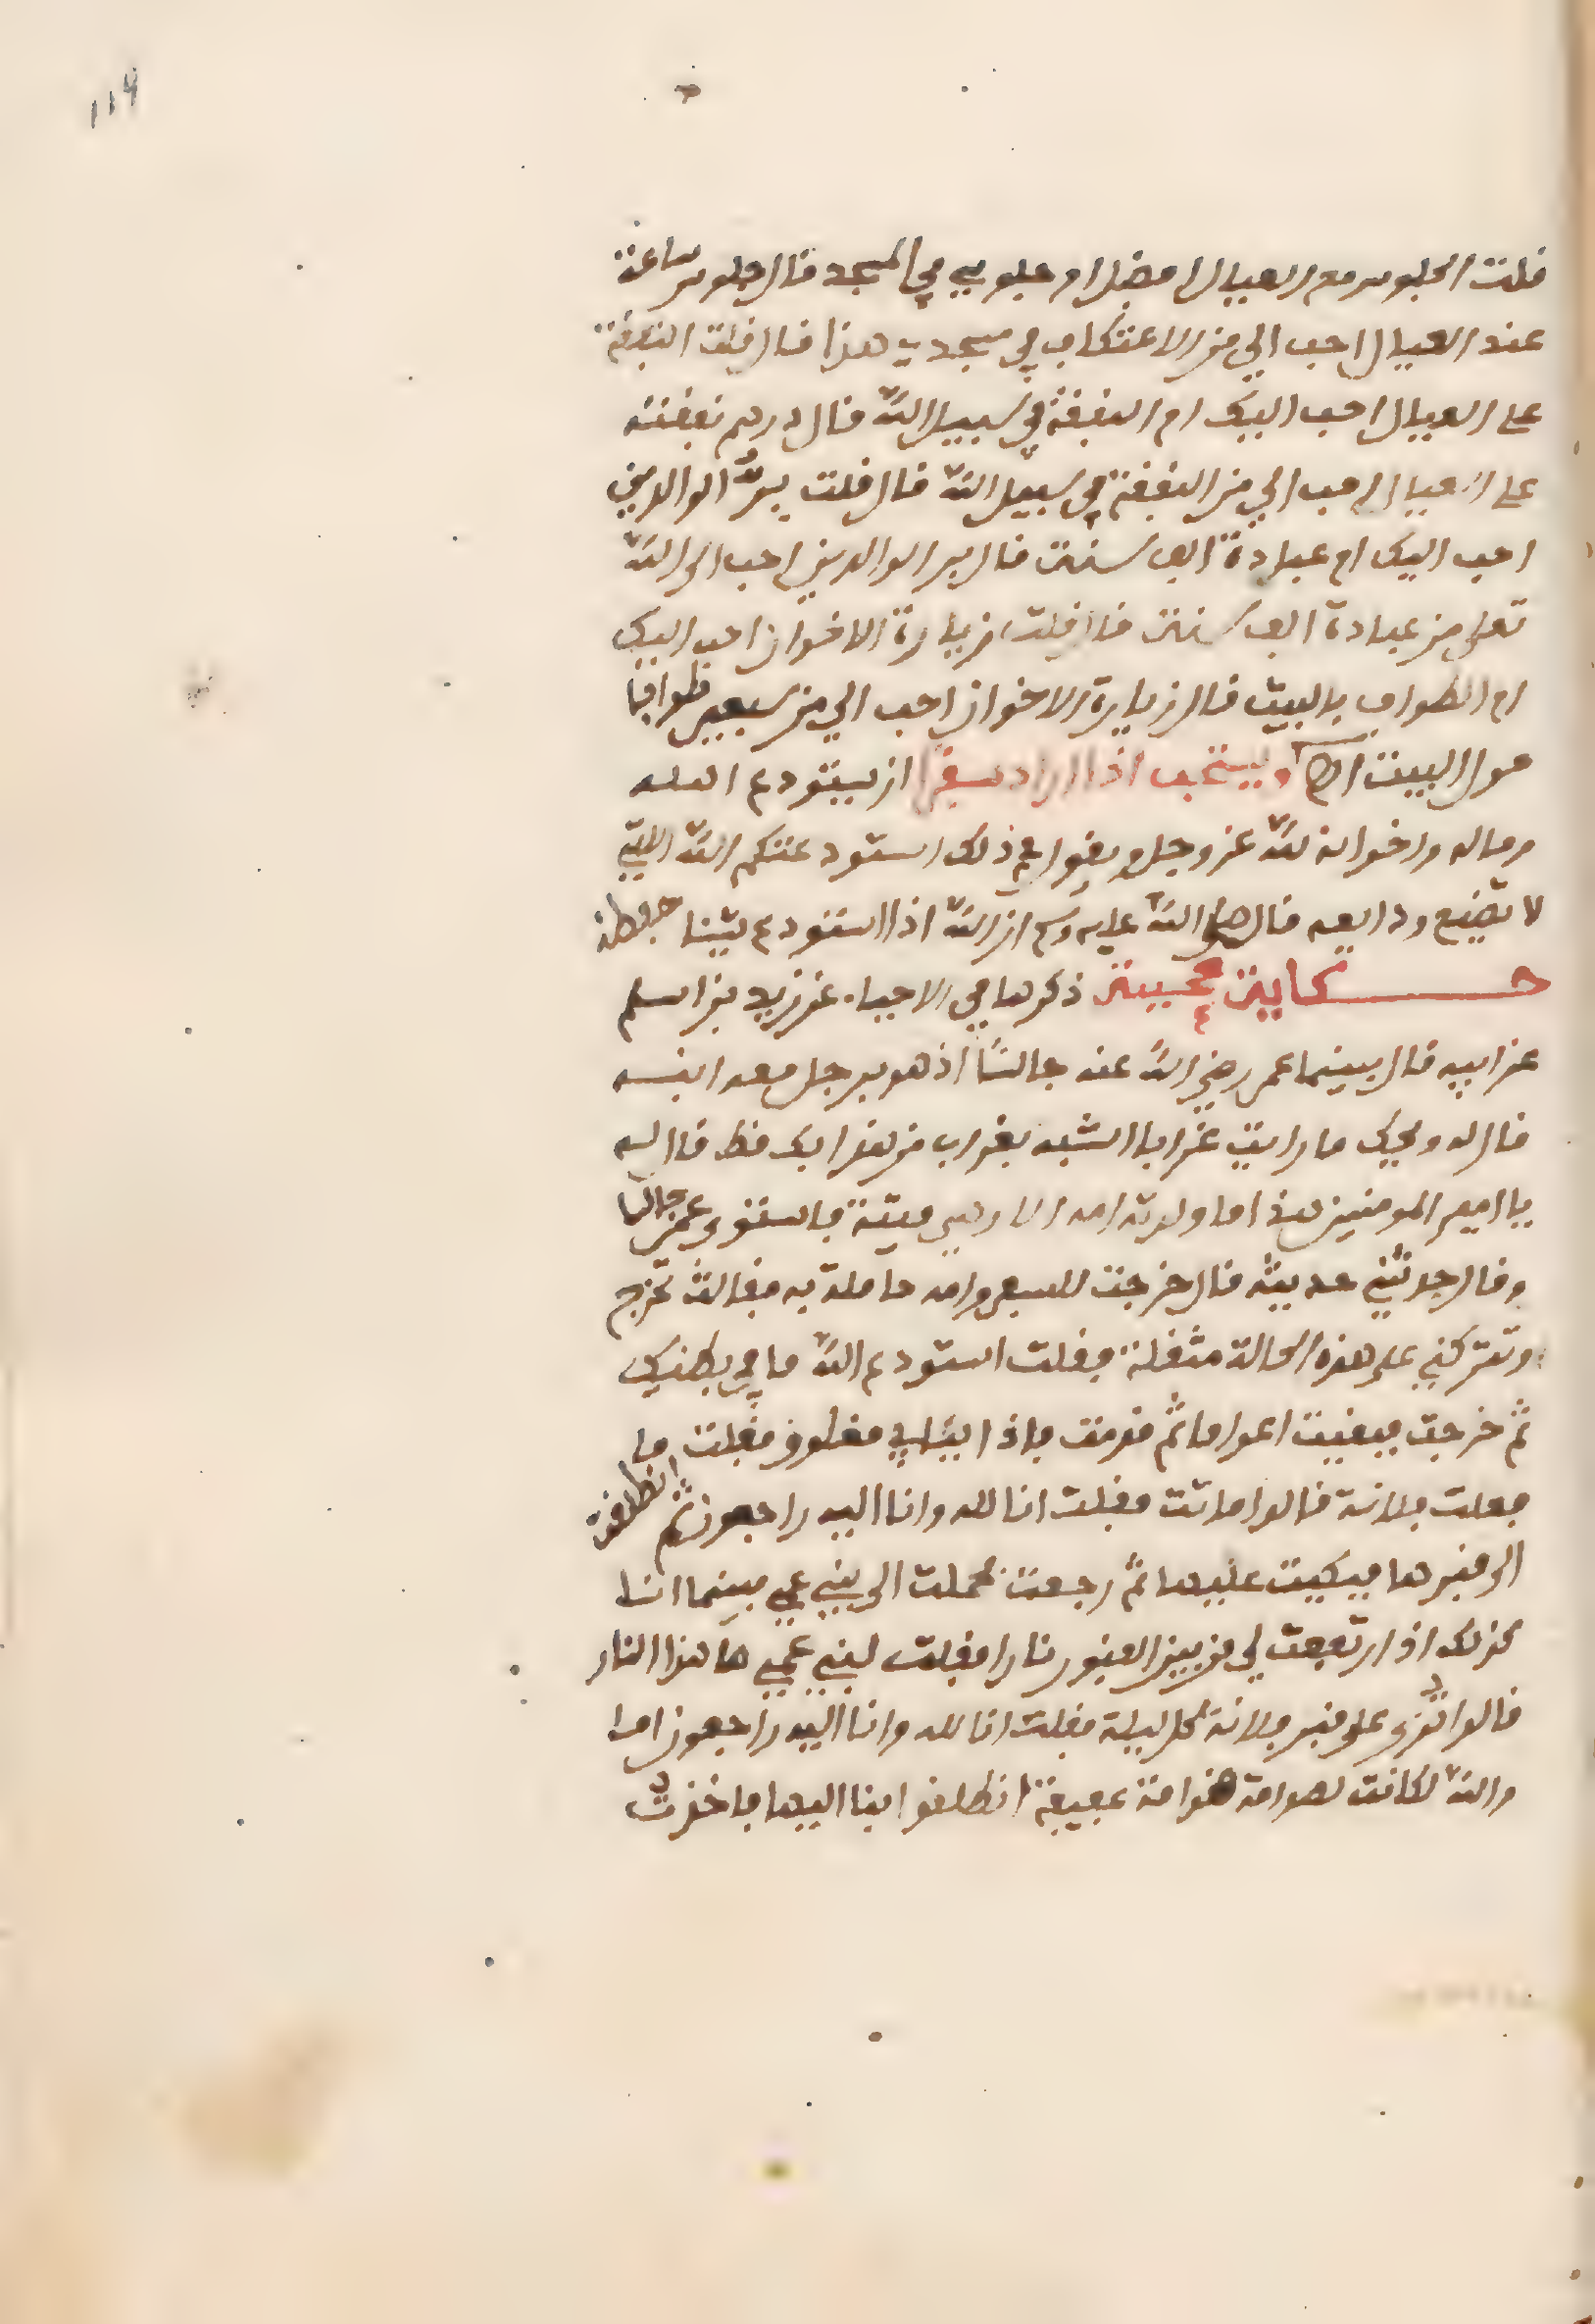 114
قلت الجلوس مع العيال افضل ام جلوسي في المسجد قال جلوس ساعة
عند العيال احب الي من الاعتكاف في مسجدي هذا قال قلت النفقة
على العيال احب اليك ام النفقة في سبيل الله قال درهم نفقته
على العيال احب الي من النفقة في سبيل الله قال قلت برّ الوالدين
احب اليك ام عبادة الف سنة قال بر الوالدين احب الى الله
تعلى من عبادة الف سنة قال قلت زيارة الاخوان احب اليك
ام الطواف بالبيت قال زيارة الاخوان احب الي من سبعين طوافا
حول البيت ويستحب اذا اراد سفرا ان يستودع اهله
وماله واخوانه لله عز وجل ويقول في ذلك استودعتكم الله الذي
لا تضيع ودايعه قال صلى الله عليه وسلم ان الله اذا استودع شيئا حفظه
حكاية عجيبة ذكرها في الاحياء عن زيد بن اسلم
عن ابيه قال بينما عمر رضي الله عنه جالسًا اذ هو برجل معه ابنه
قال له ويحك ما رايت غرابا اشبه بغراب من هذا بك قط قال له
يا امير المومنين هذا ما ولدته امه الا وهي ميتة فاستوى عمر جالسا
وقال حدثني حديثه قال خرجت للسفر وامه حاملة به فقالت تخرج
وتتركني على هذه الحالة مثقلة فقلت استودع الله ما في بطنك
ثم خرجت فبغيت اعواما ثم قدمت فاذا بابي مغلوق فقلت ما
فعلت فلانة قالوا ماتت فقلت انا لله وانا اليه راجعون ثم انطلقت
الى قبرها فبكيت عليها ثم رجعت فحملت الى بني عمي فبينما انا
كذلك اذ ارتفعت لي من بين القبور نارا فقلت لبني عمي ما هذا النار
قالوا ترى على قبر فلانة كل ليلة فقلت انا لله وانا اليه راجعون اما
والله لكانت صوامة قوامة عفيفة انطلقوا بنا اليها فاخذت